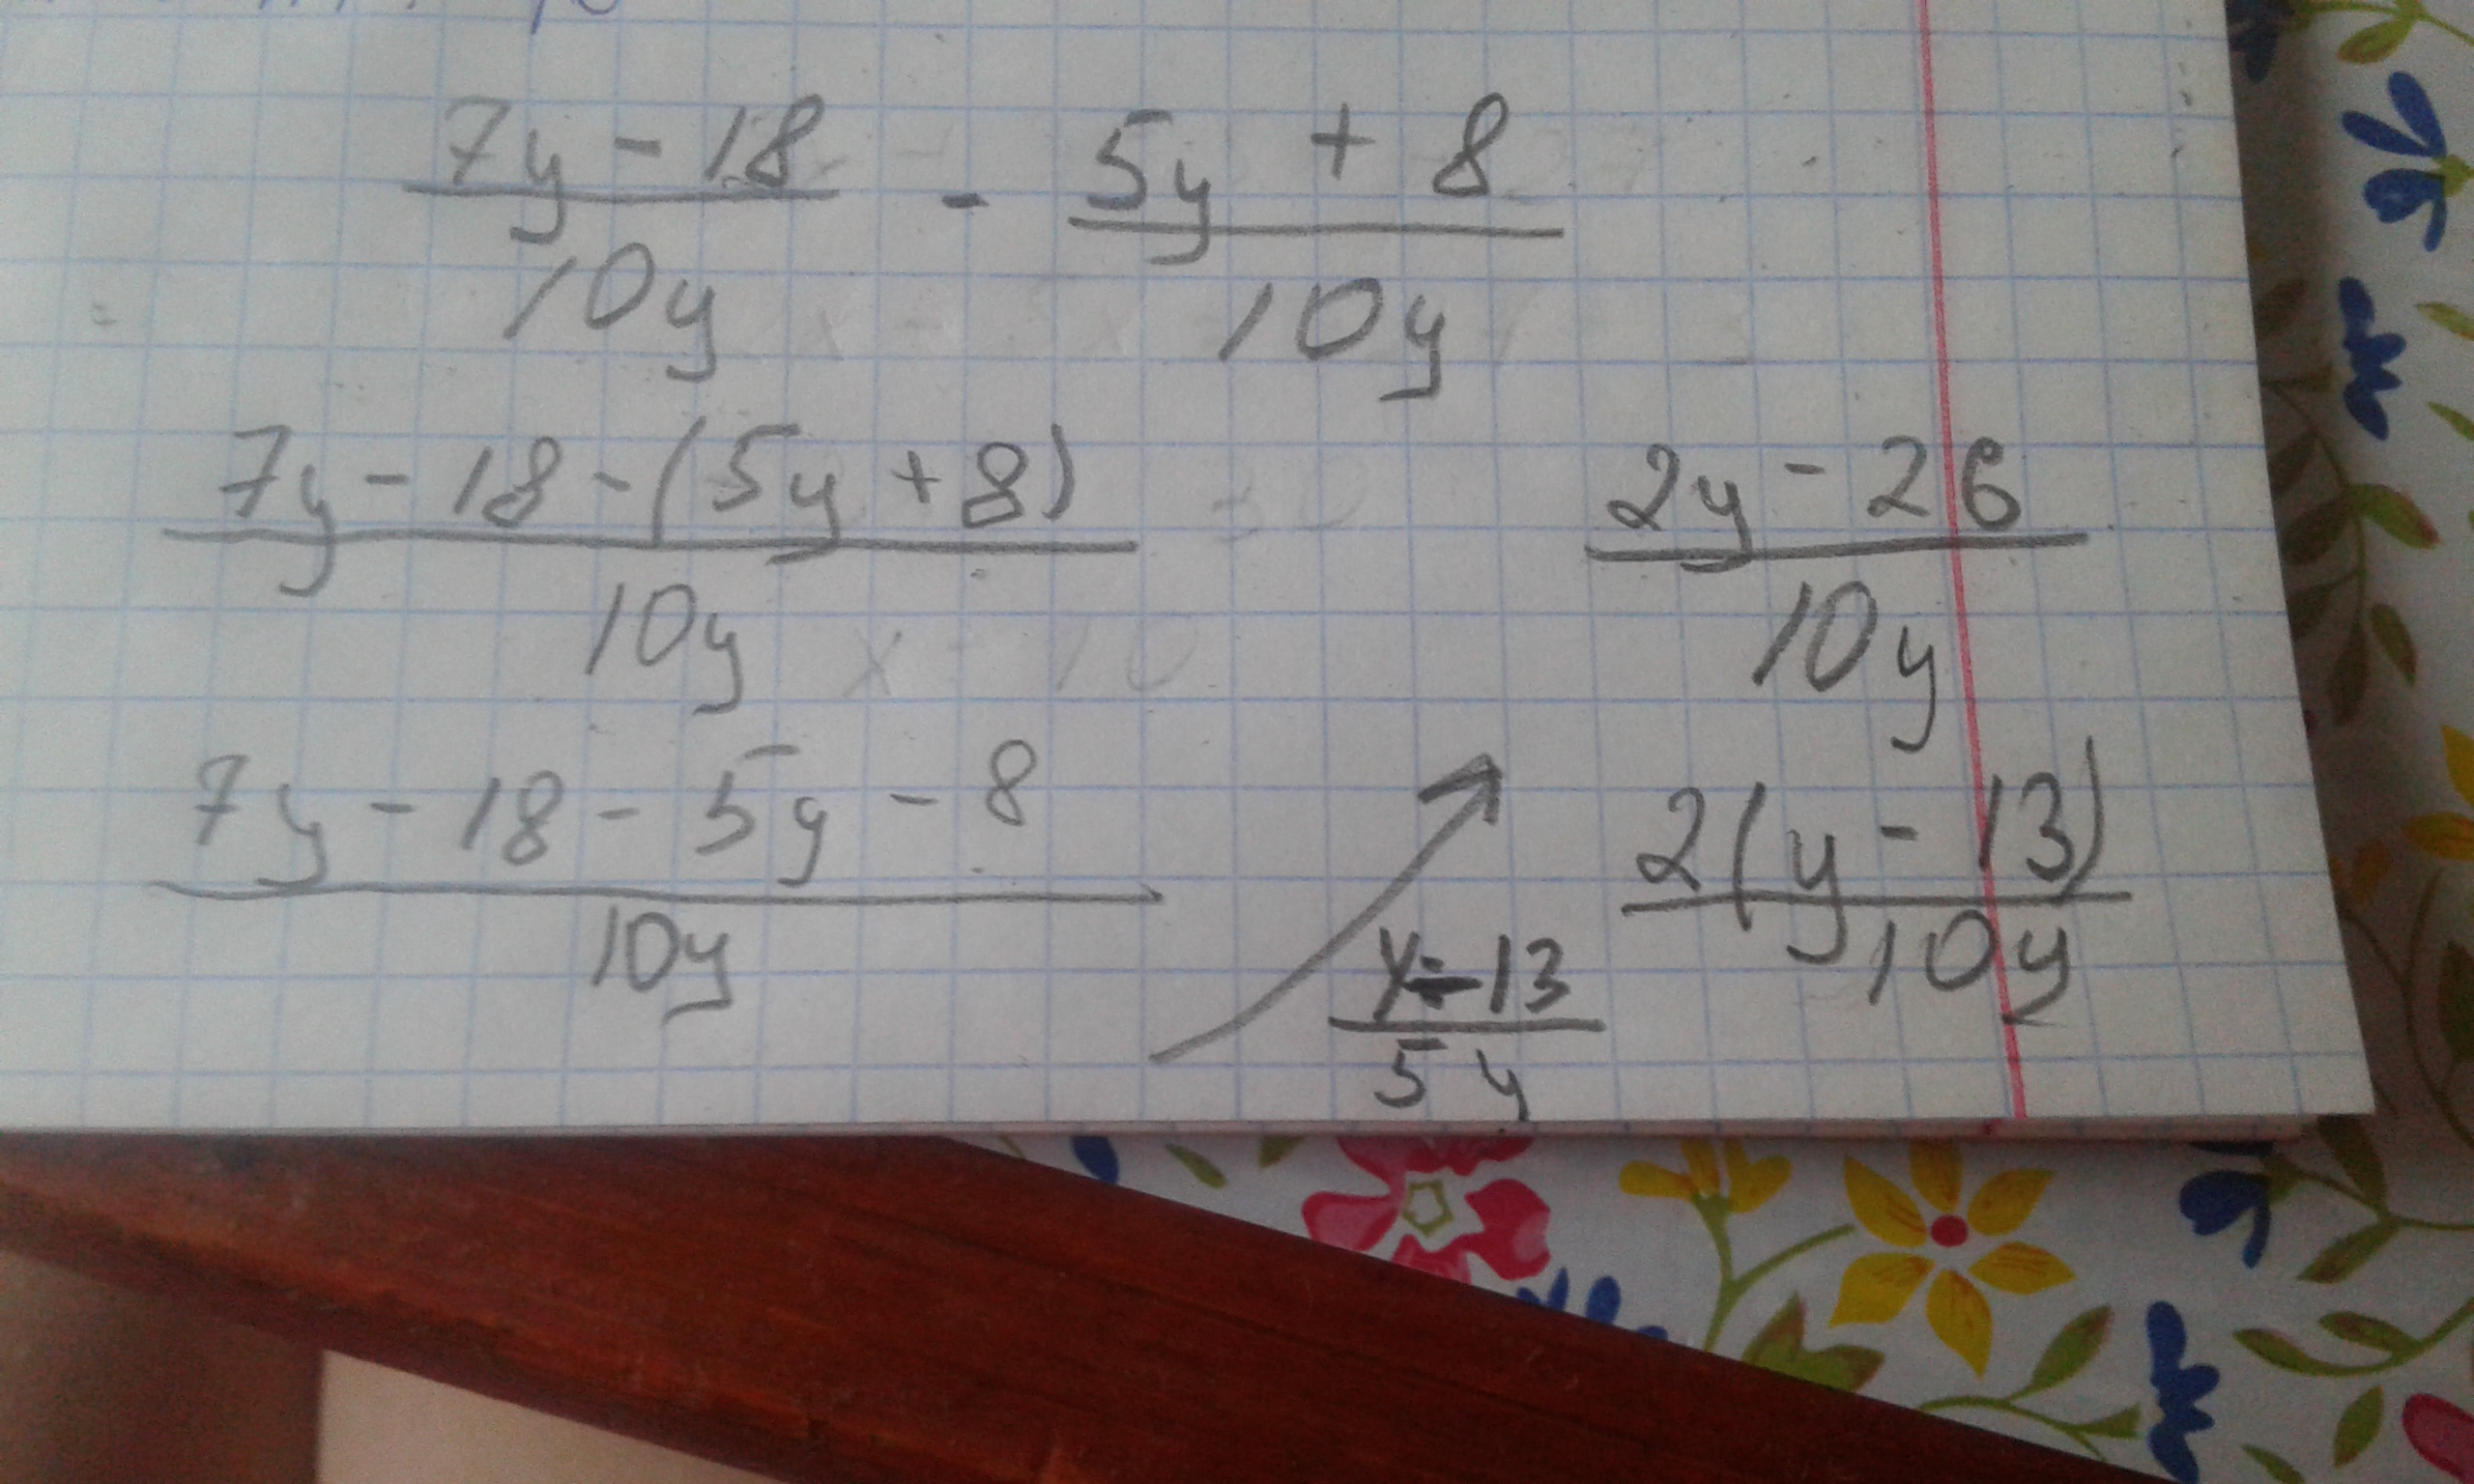 7y - 18 / 10y - 5y + 8 / 10y
7y - 18 - (5y + 8) / 10y
7y - 18 - 5y - 8 / 10y
2y - 26 / 10y
2(y - 13) / 10y
y - 13 / 5y